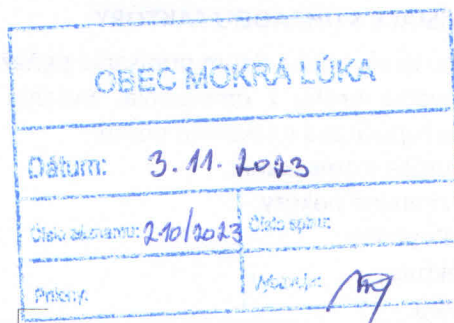 OBEC MOKRÁ LÚKA
Dátum: 3. 11. 2023
Číslo záznamu: 210/2023 Číslo spisu:
Prílohy: Vybavuje: